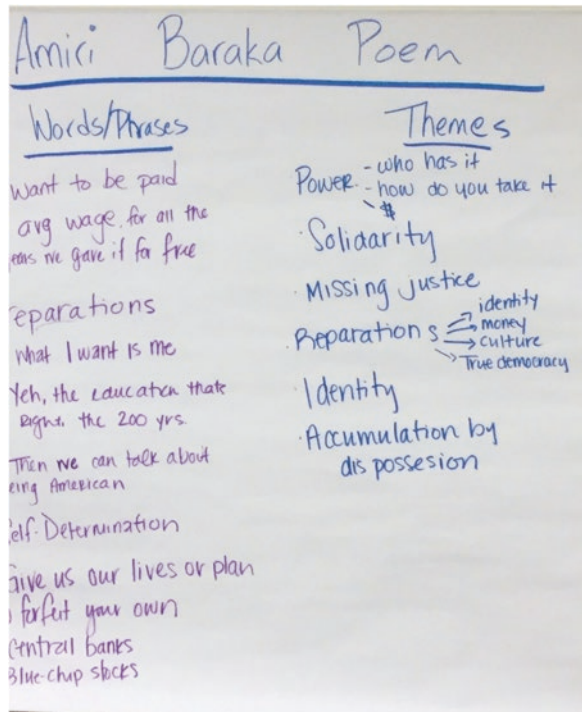 Amiri Baraka Poem
Words/Phrases
want to be paid
avg wage, for all the
ears we gave it for free
eparations
What I want is me
Yeh, the education thats
Right. the 200 yrs.
Then we can talk about
eing American
elf-Determination
Give us our lives or plan
o forfeit your own
Central banks
Blue-chip stocks
Themes
Power - who has it
- how do you take it
$
· Solidarity
· Missing justice
· Reparations
identity
money
culture
True democracy
· Identity
· Accumulation by
dis possesion